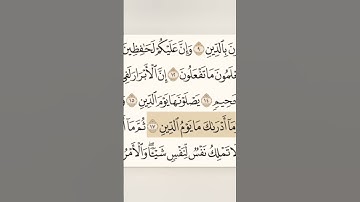 ونَ بِٱلدِّينِ ٩ وَإِنَّ عَلَيْكُمْ لَحَٰفِظِينَ
عْلَمُونَ مَا تَفْعَلُونَ ١٢ إِنَّ ٱلْأَبْرَارَ لَفِى
جَحِيمٍ ١٤ يَصْلَوْنَهَا يَوْمَ ٱلدِّينِ ١٥ وَ
مَآ أَدْرَىٰكَ مَا يَوْمُ ٱلدِّينِ ١٧ ثُمَّ مَآ أَ
لَا تَمْلِكُ نَفْسٌ لِّنَفْسٍ شَيْـًٔا ۖ وَٱلْأَمْرُ